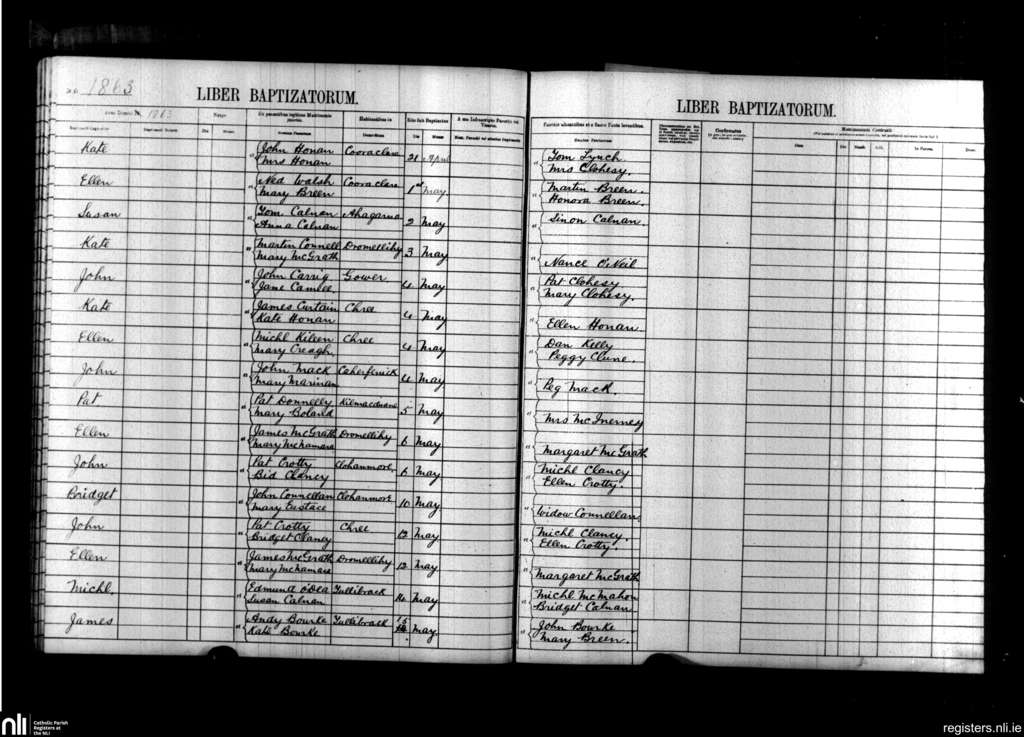 1863
LIBER BAPTIZATORUM.
LIBER BAPTIZATORUM.
1863
Kate John Honan Cooraclare 21 April
Mrs Honan
Tom Lynch
Mrs Clohesy.
Ellen Ned Walsh Cooraclare 1st May
Mary Breen
Martin Breen.
Honora Breen.
Susan Tom Calnan Ahagarna 2 May
Anna Calnan
Sinon Calnan.
Kate Martin Connell Dromellihy 3 May
Mary McGrath
Nance O'Neil
John John Carrig Gower 4 May
Jane
Pat Clohesy
Mary Clohesy.
Kate James Curtain Chree 4 May
Kate Honan
Ellen Honan
Ellen Michl Kileen Chree 4 May
Mary Creagh
Dan Kelly
Peggy Clune.
John John Mack 4 May
Mary Marinan
Peg Mack.
Pat Pat Donnelly Kilmacduane 5 May
Mary Boland
Mrs McInerney
Ellen James McGrath Dromellihy 6 May
Mary McNamara
Margaret McGrath
John Pat Crotty Clohanmore 6 May
Bid Clancy
Michl Clancy
Ellen Crotty.
Bridget John Connellan Clohanmore 10 May
Mary Eustace
Widow Connellan
John Pat Crotty Chree 12 May
Bridget Clancy
Michl Clancy.
Ellen Crotty.
Ellen James McGrath Dromellihy 12 May
Mary McNamara
Margaret McGrath
Michl. Edmund O'Dea Tullibrack 14 May
Susan Calnan
Michl McMahon
Bridget Calnan
James Andy Bourke Tullibrack 15 May
Kate Bourke
John Bourke
Mary Breen.
nli
Catholic Parish
Registers at
the NLI
registers.nli.ie